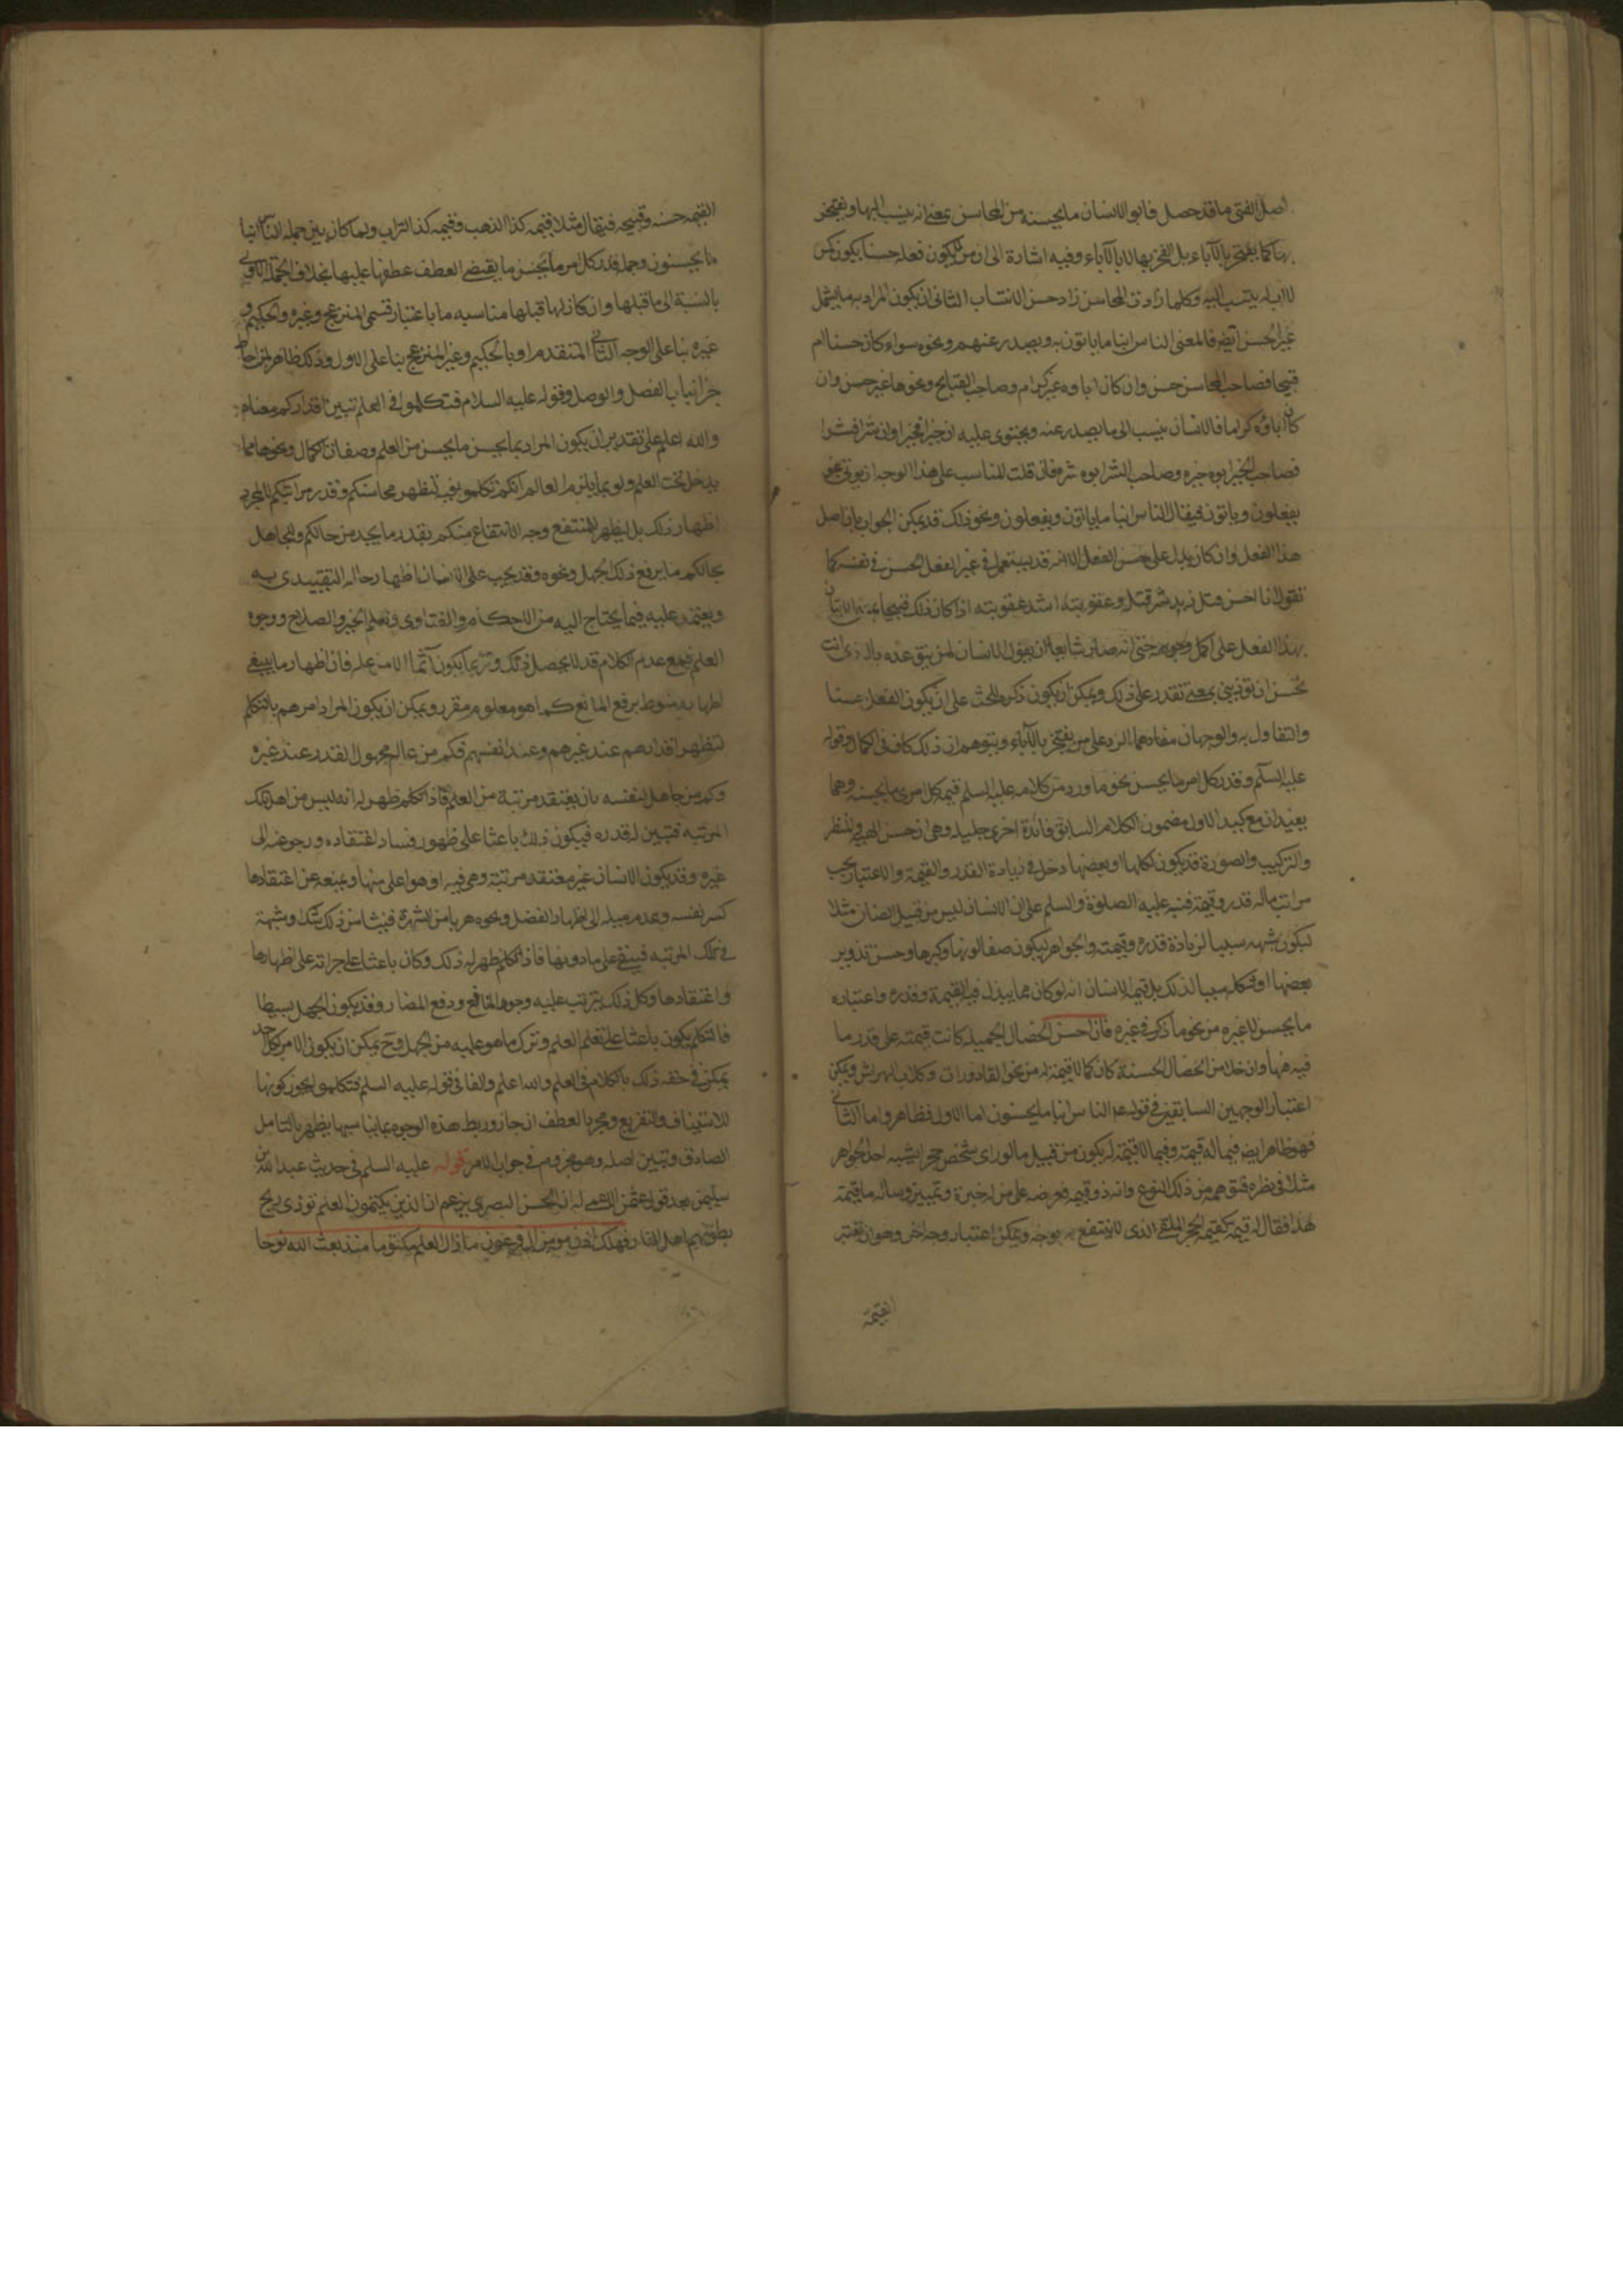 اصل الفتى ما قد حصل فابو الانسان ما يحسنه من المحاسن بمعنى انه ينسب اليها ويفتخر
بها كما يفتخر بالآباء بل الفخر بها لا بالآباء وفيه اشارة الى ان من يكون فعله حسنا يكون كمن
لا اب له ينتسب اليه وكلما زادت المحاسن زاد حسن الانتساب الثانى ان يكون المراد به ما يشمل
غير الحسن ايضا فالمعنى الناس ابنا ما ياتون به ويصدر عنهم ونحوه سواء كان حسنا ام
قبيحا فصاحب المحاسن حسن وان كان اباوه غير كرام وصاحب القبايح ونحوها غير حسن وان
كان اباؤه كراما فالانسان ينسب الى ما يصدر عنه ويحتوى عليه ان خيرا فخيرا وان شرا فشرا
فصاحب الخير ابوه خيره وصاحب الشر ابوه شره فان قلت المناسب على هذا الوجه ان يوتى بنحو
يفعلون وياتون فيقال الناس ابنا ما ياتون ويفعلون ونحو ذلك قد يمكن الجواب بان اصل
هذا الفعل وان كان يدل على حسن الفعل الا انه قد يستعمل فى غير الفعل الحسن فى نفسه كما
تقول انا احسن قتل زيد شر قتله وعقوبته اشد عقوبته اذا كان ذلك قبيحا
بهذا الفعل على اكمل وجوهه حتى انه صار شايعا ان يقول الانسان لمن يتوعده بالاذى انت
تحسن ان توذينى بمعنى تقدر على ذلك ويمكن ان يكون ذكره للحث على ان يكون الفعل حسنا
والتفاول به والوجهان مفادهما الرد على من يفتخر بالآباء ويتوهم ان ذلك كاف فى الكمال وقوله
عليه السلم وقدر كل امرء ما يحسن نحو ما ورد من كلامه عليه السلم قيمة كل امرئ ما يحسنه وهما
يفيدان مع تاكيد الاول مضمون الكلام السابق فائدة اخرى جليلة وهى ان حسن الهيئة والمنظر
والتركيب والصورة قد يكون لكلها او بعضها دخل فى زيادة القدر والقيمة والاعتبار بحسب
مراتب ماله قدر وقيمة فنبه عليه الصلوة والسلم على ان الانسان ليس من قبيل الضان مثلا
ليكون شبهه سببا لزيادة قدره وقيمته والجواهر ليكون صفا لونها وكبرها وحسن تدوير
بعضها او شكله سببا لذلك بل قيمة الانسان انه لو كان مما يبذل فيه القيمة وقدره واعتباره
ما يحسن لا غيره من نحو ما ذكر فى غيره فان احسن الخصال الجميلة كانت قيمته على قدر ما
فيه منها وان خلا من الخصال الحسنة كان كما لا قيمة له من نحو القاذورات وكلاب الهراش ويمكن
اعتبار الوجهين السابقين فى قوله عم الناس ابنا ما يحسنون اما الاول فظاهر واما الثانى
فهو ظاهر ايضا فيما له قيمة وفيما لا قيمة له يكون من قبيل ما لو راى شخص حجرا يشبه احد الجواهر
مثلا فى نظره فتوهمه من ذلك النوع وانه ذو قيمة فعرضه على من له خبرة وتمييز وساله ما قيمة
هذا فقال له قيمته كقيمة الحجر الملقى الذى لا ينتفع به بوجه ويمكن اعتبار وجه اخر وهو ان تعتبر
القيمة
القيمة حسنه وقبيحه فيقال مثلا قيمة كذا الذهب وقيمة كذا التراب ولما كان بين جملة الناس ابنا
ما يحسنون وجملة قدر كل امرء ما يحسن ما يقتضى العطف عطفها عليها بخلاف الجملة الاولى
بالنسبة الى ما قبلها وان كان لها قبلها مناسبة ما باعتبار قسمى المنزعج وغيره والحكيم و
غيره بنا على الوجه الثانى المتقدم او بالحكيم وغير المنزعج بنا على الاول وذلك ظاهر لمن احاط
خبرا بباب الفصل والوصل وقوله عليه السلام فتكلموا فى العلم تبين اقداركم معناه
والله اعلم على تقدير ان يكون المراد بما يحسن ما يحسن من العلم وصفات الكمال ونحوها مما
يدخل تحت العلم ولو بما يلزم العالم انكم تكلموا فيه لتظهر محاسنكم وقدر مراتبكم لا لمجرد
اظهار ذلك بل ليظهر للمنتفع وجه الانتفاع منكم بقدر ما يجد من حالكم وللجاهل
بحالكم ما يرفع ذلك الجهل ونحوه وقد يجب على الانسان اظهار حاله ليقتدى به
ويعتمد عليه فيما يحتاج اليه من الاحكام والفتاوى وتعلم الخير والصلاح ووجوه
العلم فمع عدم الكلام قد لا يحصل ذلك وربما يكون آثما الا مع علة فان اظهار ما ينبغى
اظهاره منوط برفع المانع كما هو معلوم مقرر ويمكن ان يكون المراد امرهم بالتكلم
لتظهر اقدارهم عند غيرهم وعند انفسهم فكم من عالم مجهول القدر عند غيره
وكم من جاهل لنفسه بان يعتقد مرتبة من العلم فاذا تكلم ظهر له انه ليس من اهل تلك
المرتبة فتبين له قدره فيكون ذلك باعثا على ظهور فساد اعتقاده ورجوعه الى
غيره وقد يكون الانسان غير معتقد مرتبة وهى فيه او هو اعلى منها ويمنعه عن اعتقادها
كسر نفسه وعدم ميله الى اظهار الفضل ونحوه هربا من الشهرة فينشا من ذلك شك وشبهة
فى تلك المرتبة فيبقى على ما دونها فاذا تكلم ظهر له ذلك وكان باعثا على جراته على اظهارها
واعتقادها وكل ذلك يترتب عليه وجوه المنافع ودفع المضار وقد يكون الجهل بسيطا
فالتكلم يكون باعثا على تعلم العلم وترك ما هو عليه من الجهل وح يمكن ان يكون الامر لكل احد
يمكن فى حقه ذلك بالكلام فى العلم والله اعلم والفا فى قوله عليه السلم فتكلموا يجوز كونها
للاستيناف والتفريع ومجرد العطف ان جاز وربط هذه الوجوه بما يناسبها يظهر بالتامل
الصادق وتبين اصله وهو مجزوم فى جواب الامر قوله عليه السلم فى حديث عبد الله بن
سليمن بعد قول عثمن الاعمى له ان الحسن البصرى يزعم ان الذين يكتمون العلم توذى ريح
بطونهم اهل النار فهلك اذن مومن آل فرعون ما زال العلم مكتوما منذ بعث الله نوحا